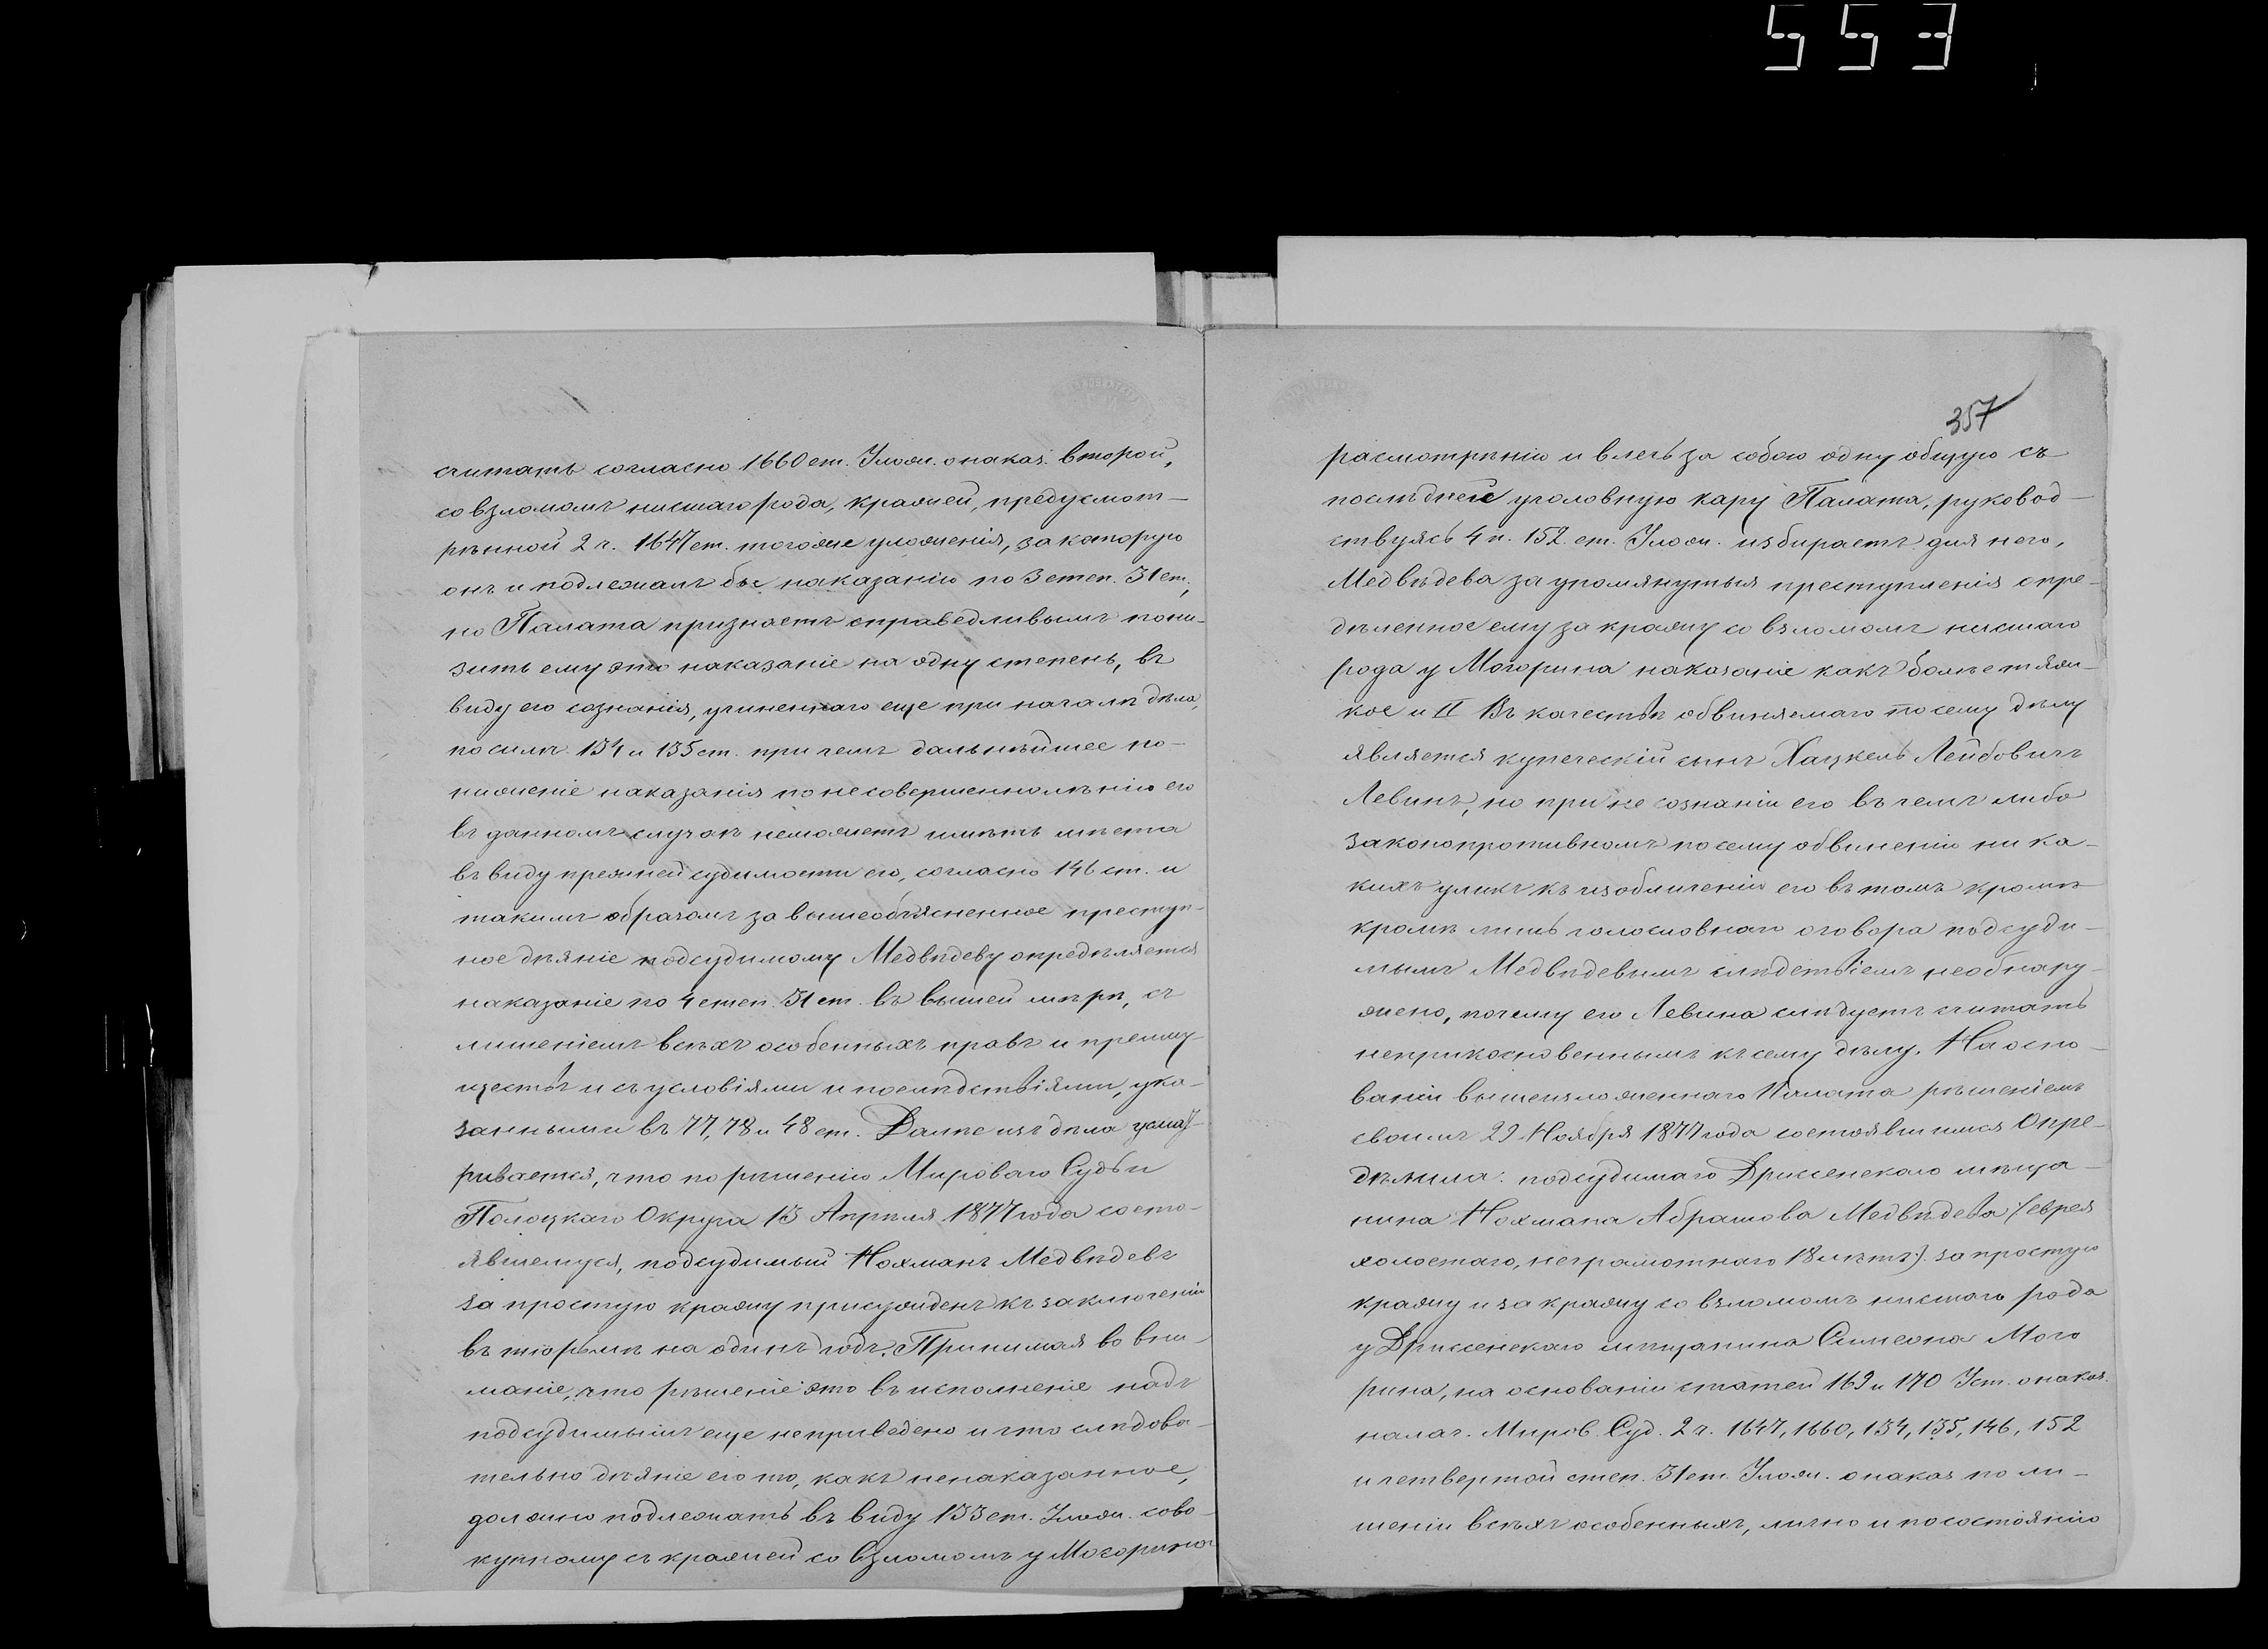 553
считать согласно 1660 ст. Улож. о наказ. второй,
со взломомъ нисшаго рода, кражей, предусмот-
рѣнной 2 ч. 1647 ст. того же уложенія, за которую
онъ и подлежалъ бы наказанію по 3 степ. 31 ст.,
но Палата признаетъ справедливымъ пони-
зить ему это наказаніе на одну степень, въ
виду его сознанія, учиненнаго еще при началѣ дѣла,
по силѣ 134 и 135 ст. при чемъ дальнѣйшее по-
ниженіе наказанія по несовершеннолѣтію его
въ данномъ случаѣ неможетъ имѣть мѣста
въ виду прежней судимости его, согласно 146 ст. и
такимъ образомъ за вышеобъясненное преступ-
ное дѣяніе подсудимому Медвѣдеву опредѣляется
наказаніе по 4 степ. 31 ст. въ вышей мѣрѣ, съ
лишеніемъ всѣхъ особенныхъ правъ и преиму-
ществъ и съ условіями и послѣдствіями, ука-
занными въ 77, 78 и 48 ст. Далѣе изъ дѣла усмат-
ривается, что по рѣшенію Мироваго Судьи
Полоцкаго Округа 13 Апрѣля 1877 года состо-
явшемуся, подсудимый Нохманъ Медвѣдевъ
за простую кражу присужденъ къ заключенію
въ тюрьмѣ на одинъ годъ. Принимая во вни-
маніе, что рѣшеніе это въ исполненіе надъ
подсудимымъ еще неприведено и что слѣдова-
тельно дѣяніе его то, какъ ненаказанное,
должно подлежать въ виду 133 ст. Улож. сово-
купному съ кражей со взломомъ у Могорина
357
расмотрѣнію и влечь за собою одну общую съ
послѣдней уголовную кару Палата, руковод-
ствуясь 4 п. 152 ст. Улож. избираетъ для него,
Медвѣдева за упомянутыя преступленія опре-
дѣленное ему за кражу со взломомъ нисшаго
рода у Могорина наказаніе какъ болѣе тяж-
кое и II Въ качествѣ обвиняемаго по сему дѣлу
является купеческій сынъ Хацкель Лейбовичъ
Левинъ, но при не сознаніи его въ чемъ либо
законопротивномъ по сему обвиненію ни ка-
кихъ уликъ къ изобличенію его въ томъ кромѣ
кромѣ лишь голословнаго оговора подсуди-
мымъ Медвѣдевымъ слѣдствіемъ необнару-
жено, почему его Левина слѣдуетъ считать
неприкосновеннымъ къ сему дѣлу. На осно-
ваніи вышеизложеннаго Палата рѣшеніемъ
своимъ 29 Ноября 1877 года состоявшимся Опре-
дѣлила: подсудимаго Дриссенскаго мѣща-
нина Нохмана Абрамова Медвѣдева (еврея
холостаго, неграмотнаго 18 лѣтъ). за простую
кражу и за кражу со взломомъ нисшаго рода
у Дриссенскаго мѣщанина Симеона Мого
рина, на основаніи статей 169 и 170 Уст. о наказ.
налаг. Миров. Суд. 2 ч. 1647, 1660, 134, 135, 146, 152
и четвертой степ. 31 ст. Улож. о наказ по ли-
шеніи всѣхъ особенныхъ, лично и по состоянію